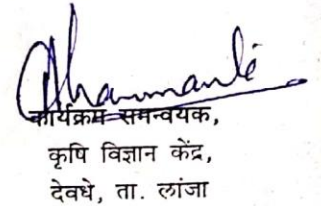 कार्यक्रम समन्वयक,
कृषि विज्ञान केंद्र,
देवधे, ता. लांजा